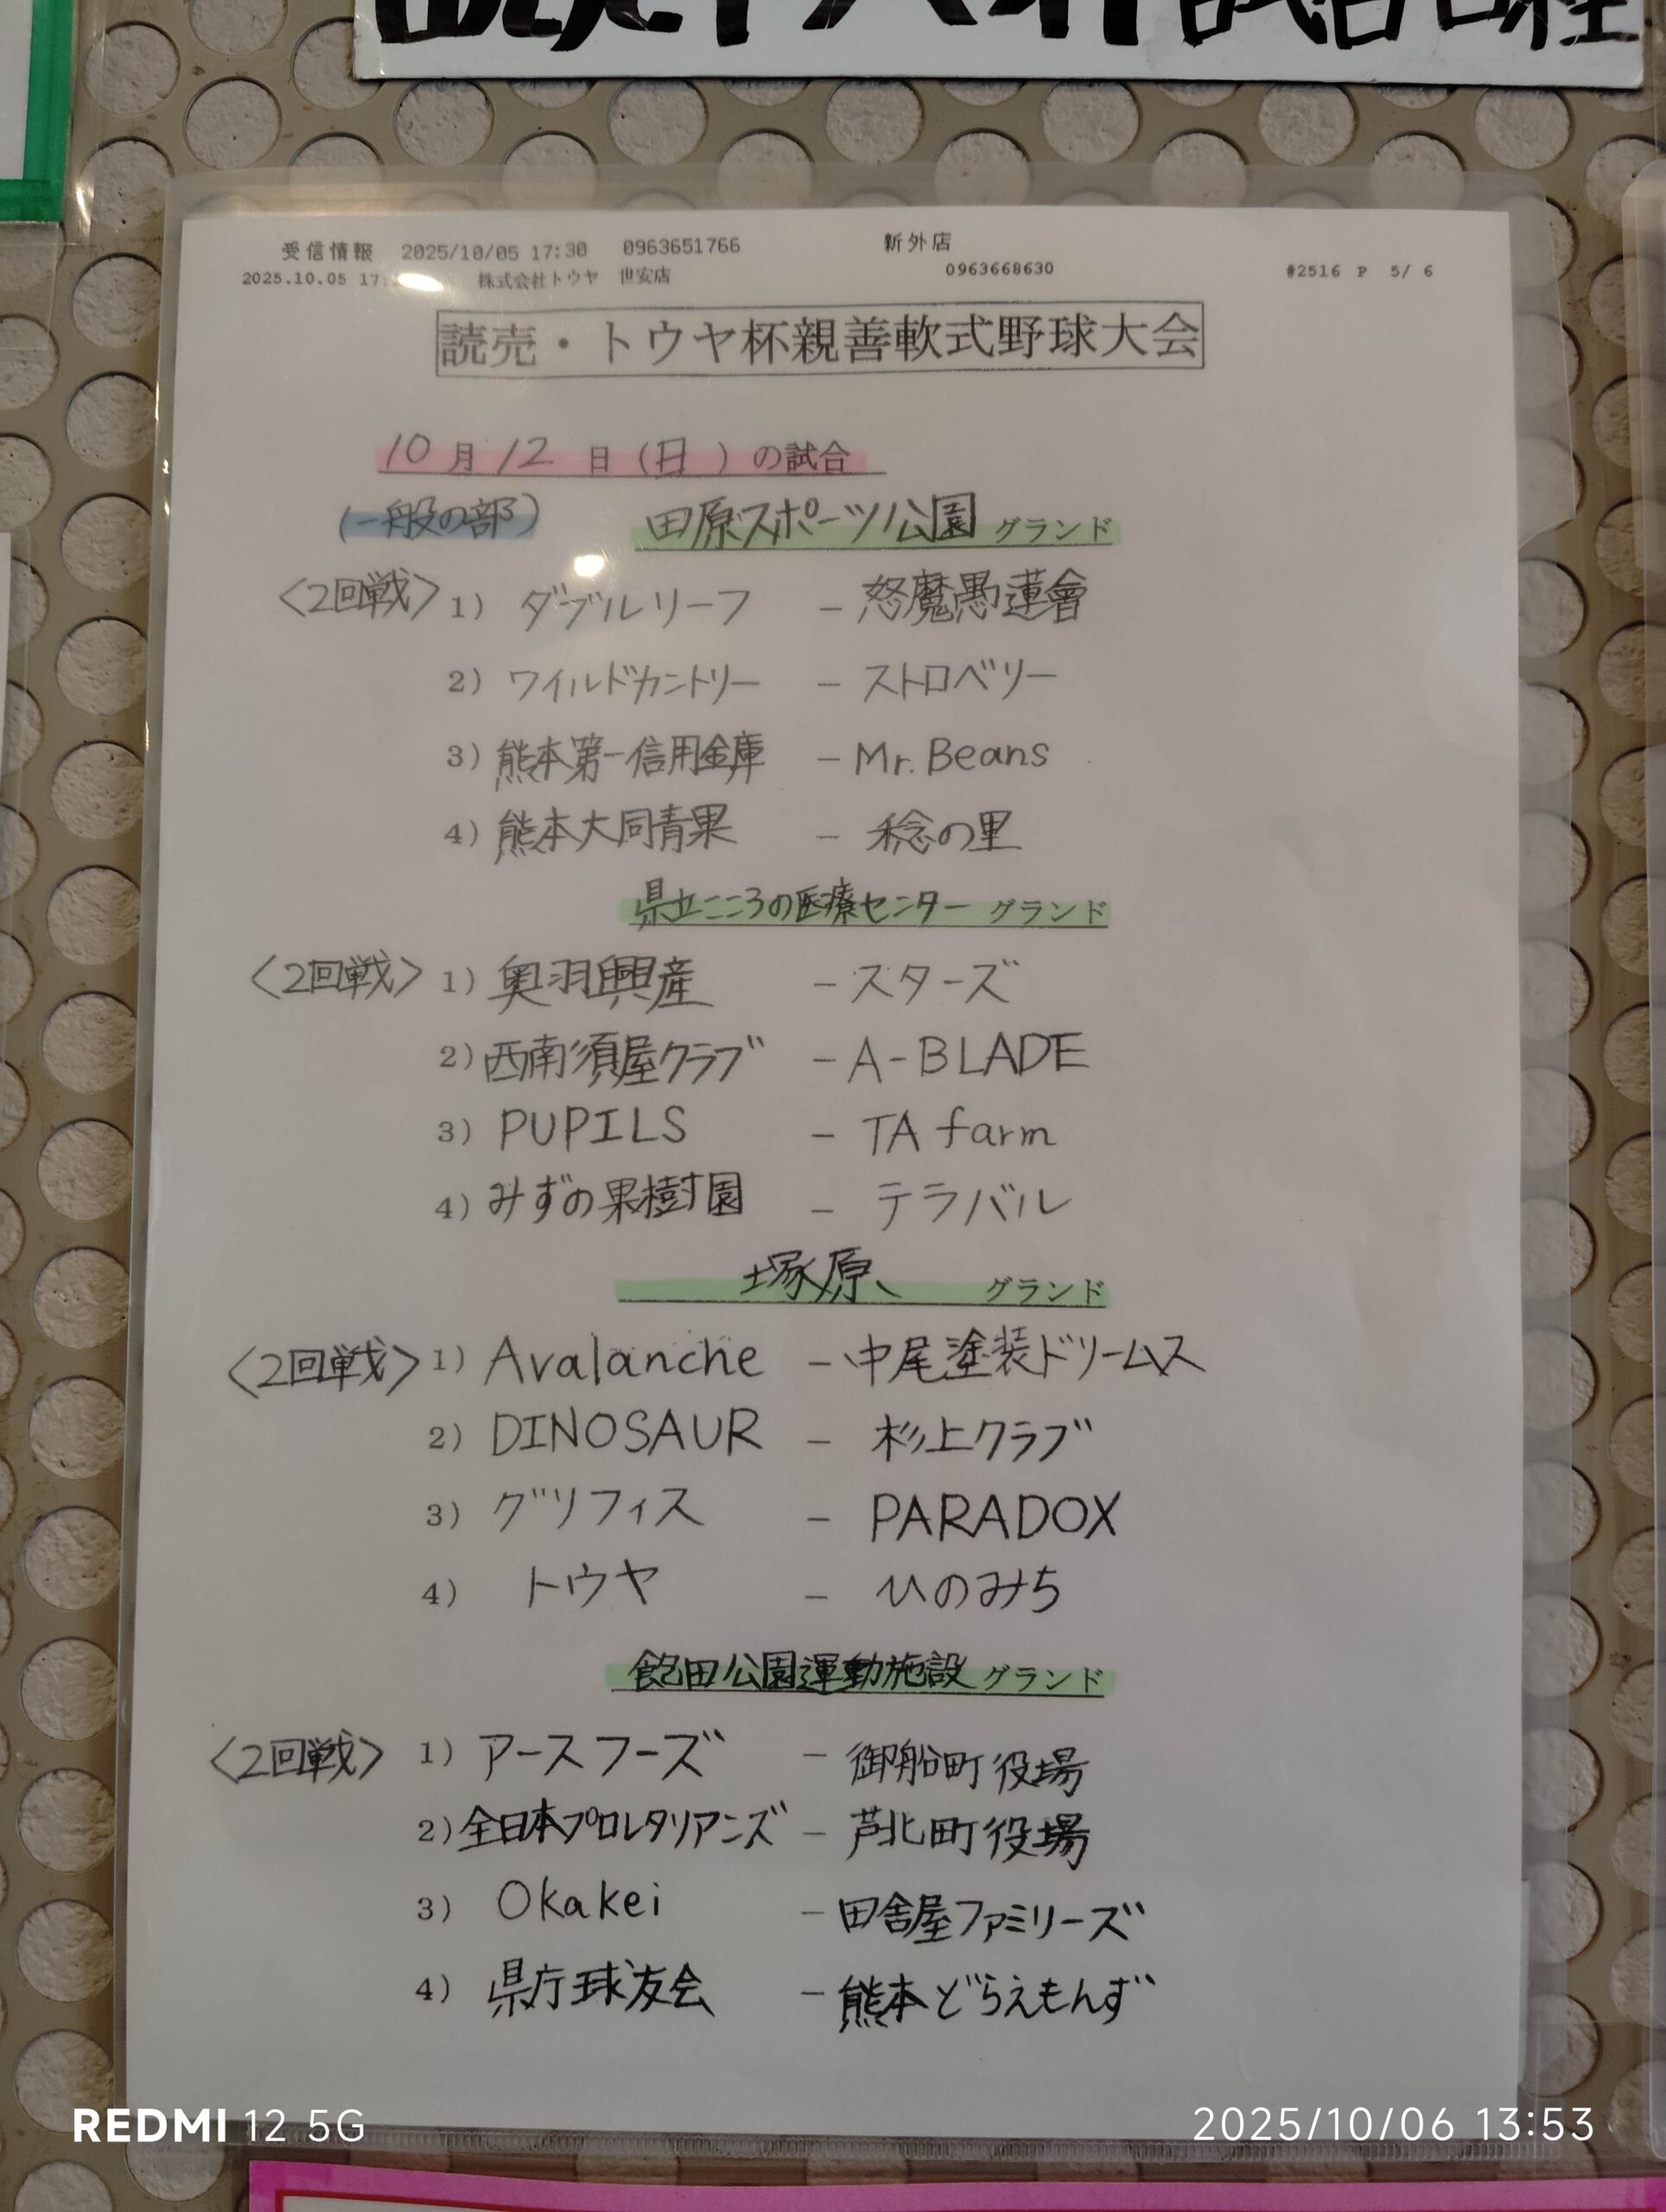 受信情報 2025/10/05 17:30 0963651766 新外店
2025.10.05 17: 株式会社トウヤ 世安店 0963668630 #2516 P 5/ 6
読売・トウヤ杯親善軟式野球大会
10月12日(日)の試合
(一般の部) 田原スポーツ公園 グランド
<2回戦> 1) ダブルリーフ - 怒魔愚蓮會
2) ワイルドカントリー - ストロベリー
3) 熊本第一信用金庫 - Mr. Beans
4) 熊本大同青果 - 稔の里
県立こころの医療センター グランド
<2回戦> 1) 奥羽興産 - スターズ
2) 西南須屋クラブ - A-BLADE
3) PUPILS - TA farm
4) みずの果樹園 - テラバル
塚原 グランド
<2回戦> 1) Avalanche - 中尾塗装ドリームス
2) DINOSAUR - 杉上クラブ
3) グリフィス - PARADOX
4) トウヤ - ひのみち
飽田公園運動施設 グランド
<2回戦> 1) アースフーズ - 御船町役場
2) 全日本プロレタリアンズ - 芦北町役場
3) Okakei - 田舎屋ファミリーズ
4) 県庁球友会 - 熊本どらえもんず
REDMI 12 5G 2025/10/06 13:53